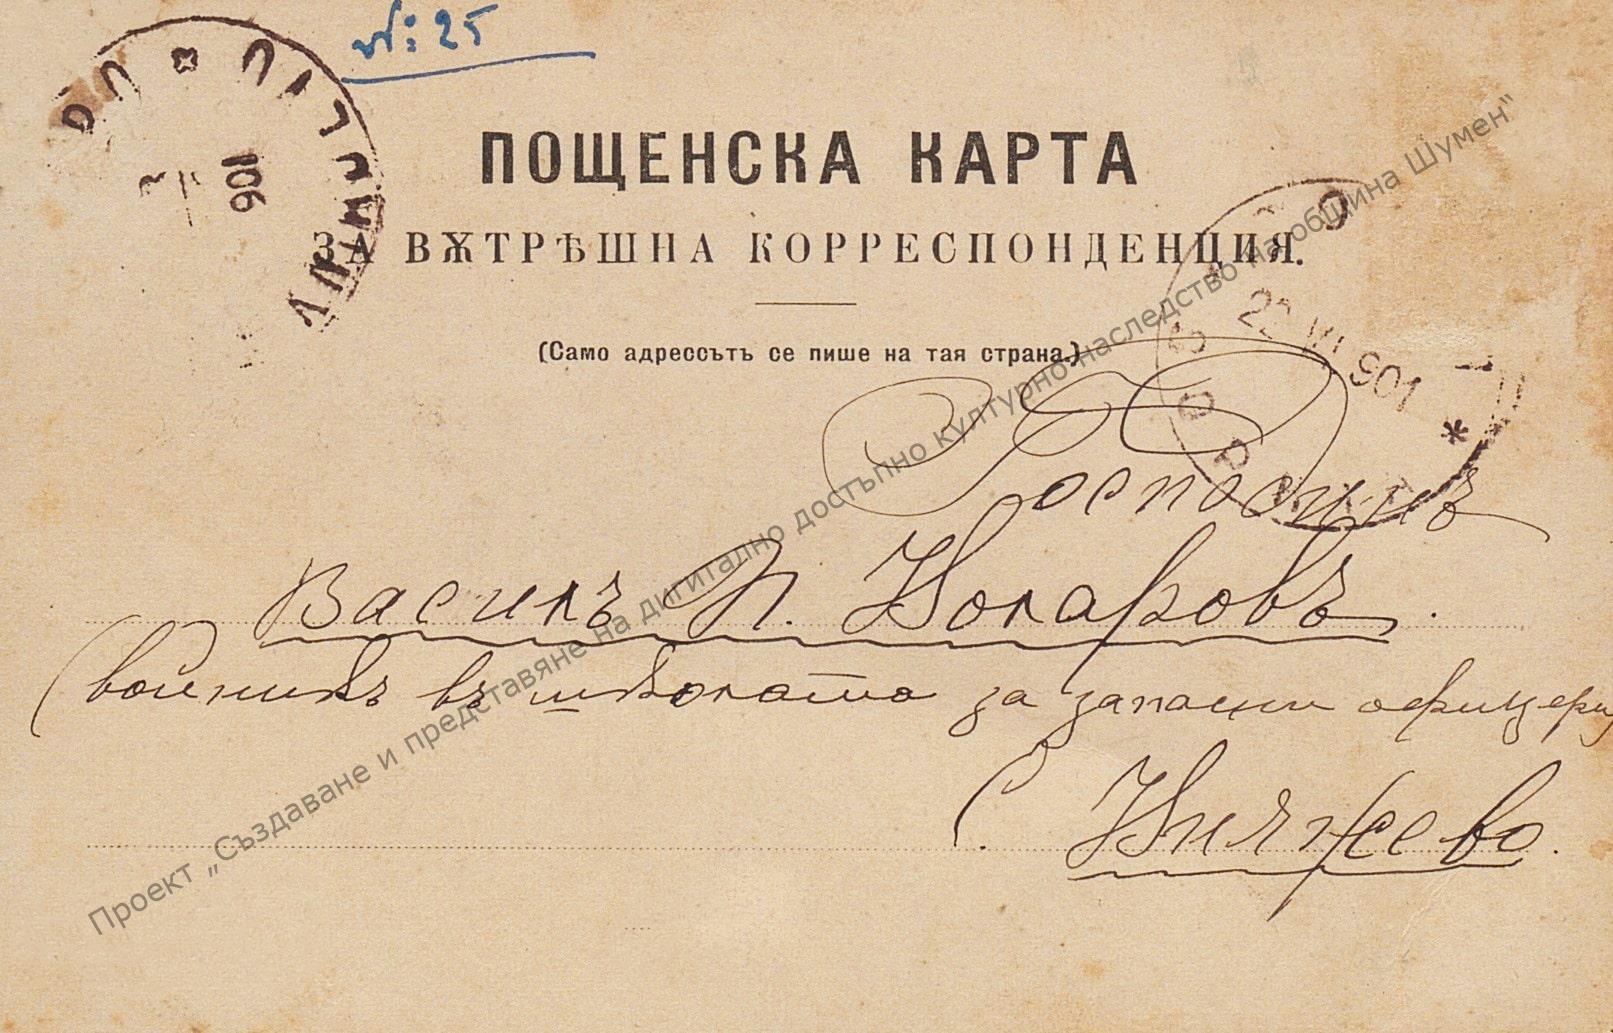 №: 25
ПОЩЕНСКА КАРТА
ЗА ВѪТРѢШНА КОРРЕСПОНДЕНЦИЯ.
(Само адрессътъ се пише на тая страна.)
901
22 VI 901
Господинъ
Василъ П. Коларовъ.
(войникъ въ школата за запасни офицери
с. Княжево.
Проект „Създаване и представяне на дигитално достъпно културно наследство на община Шумен"